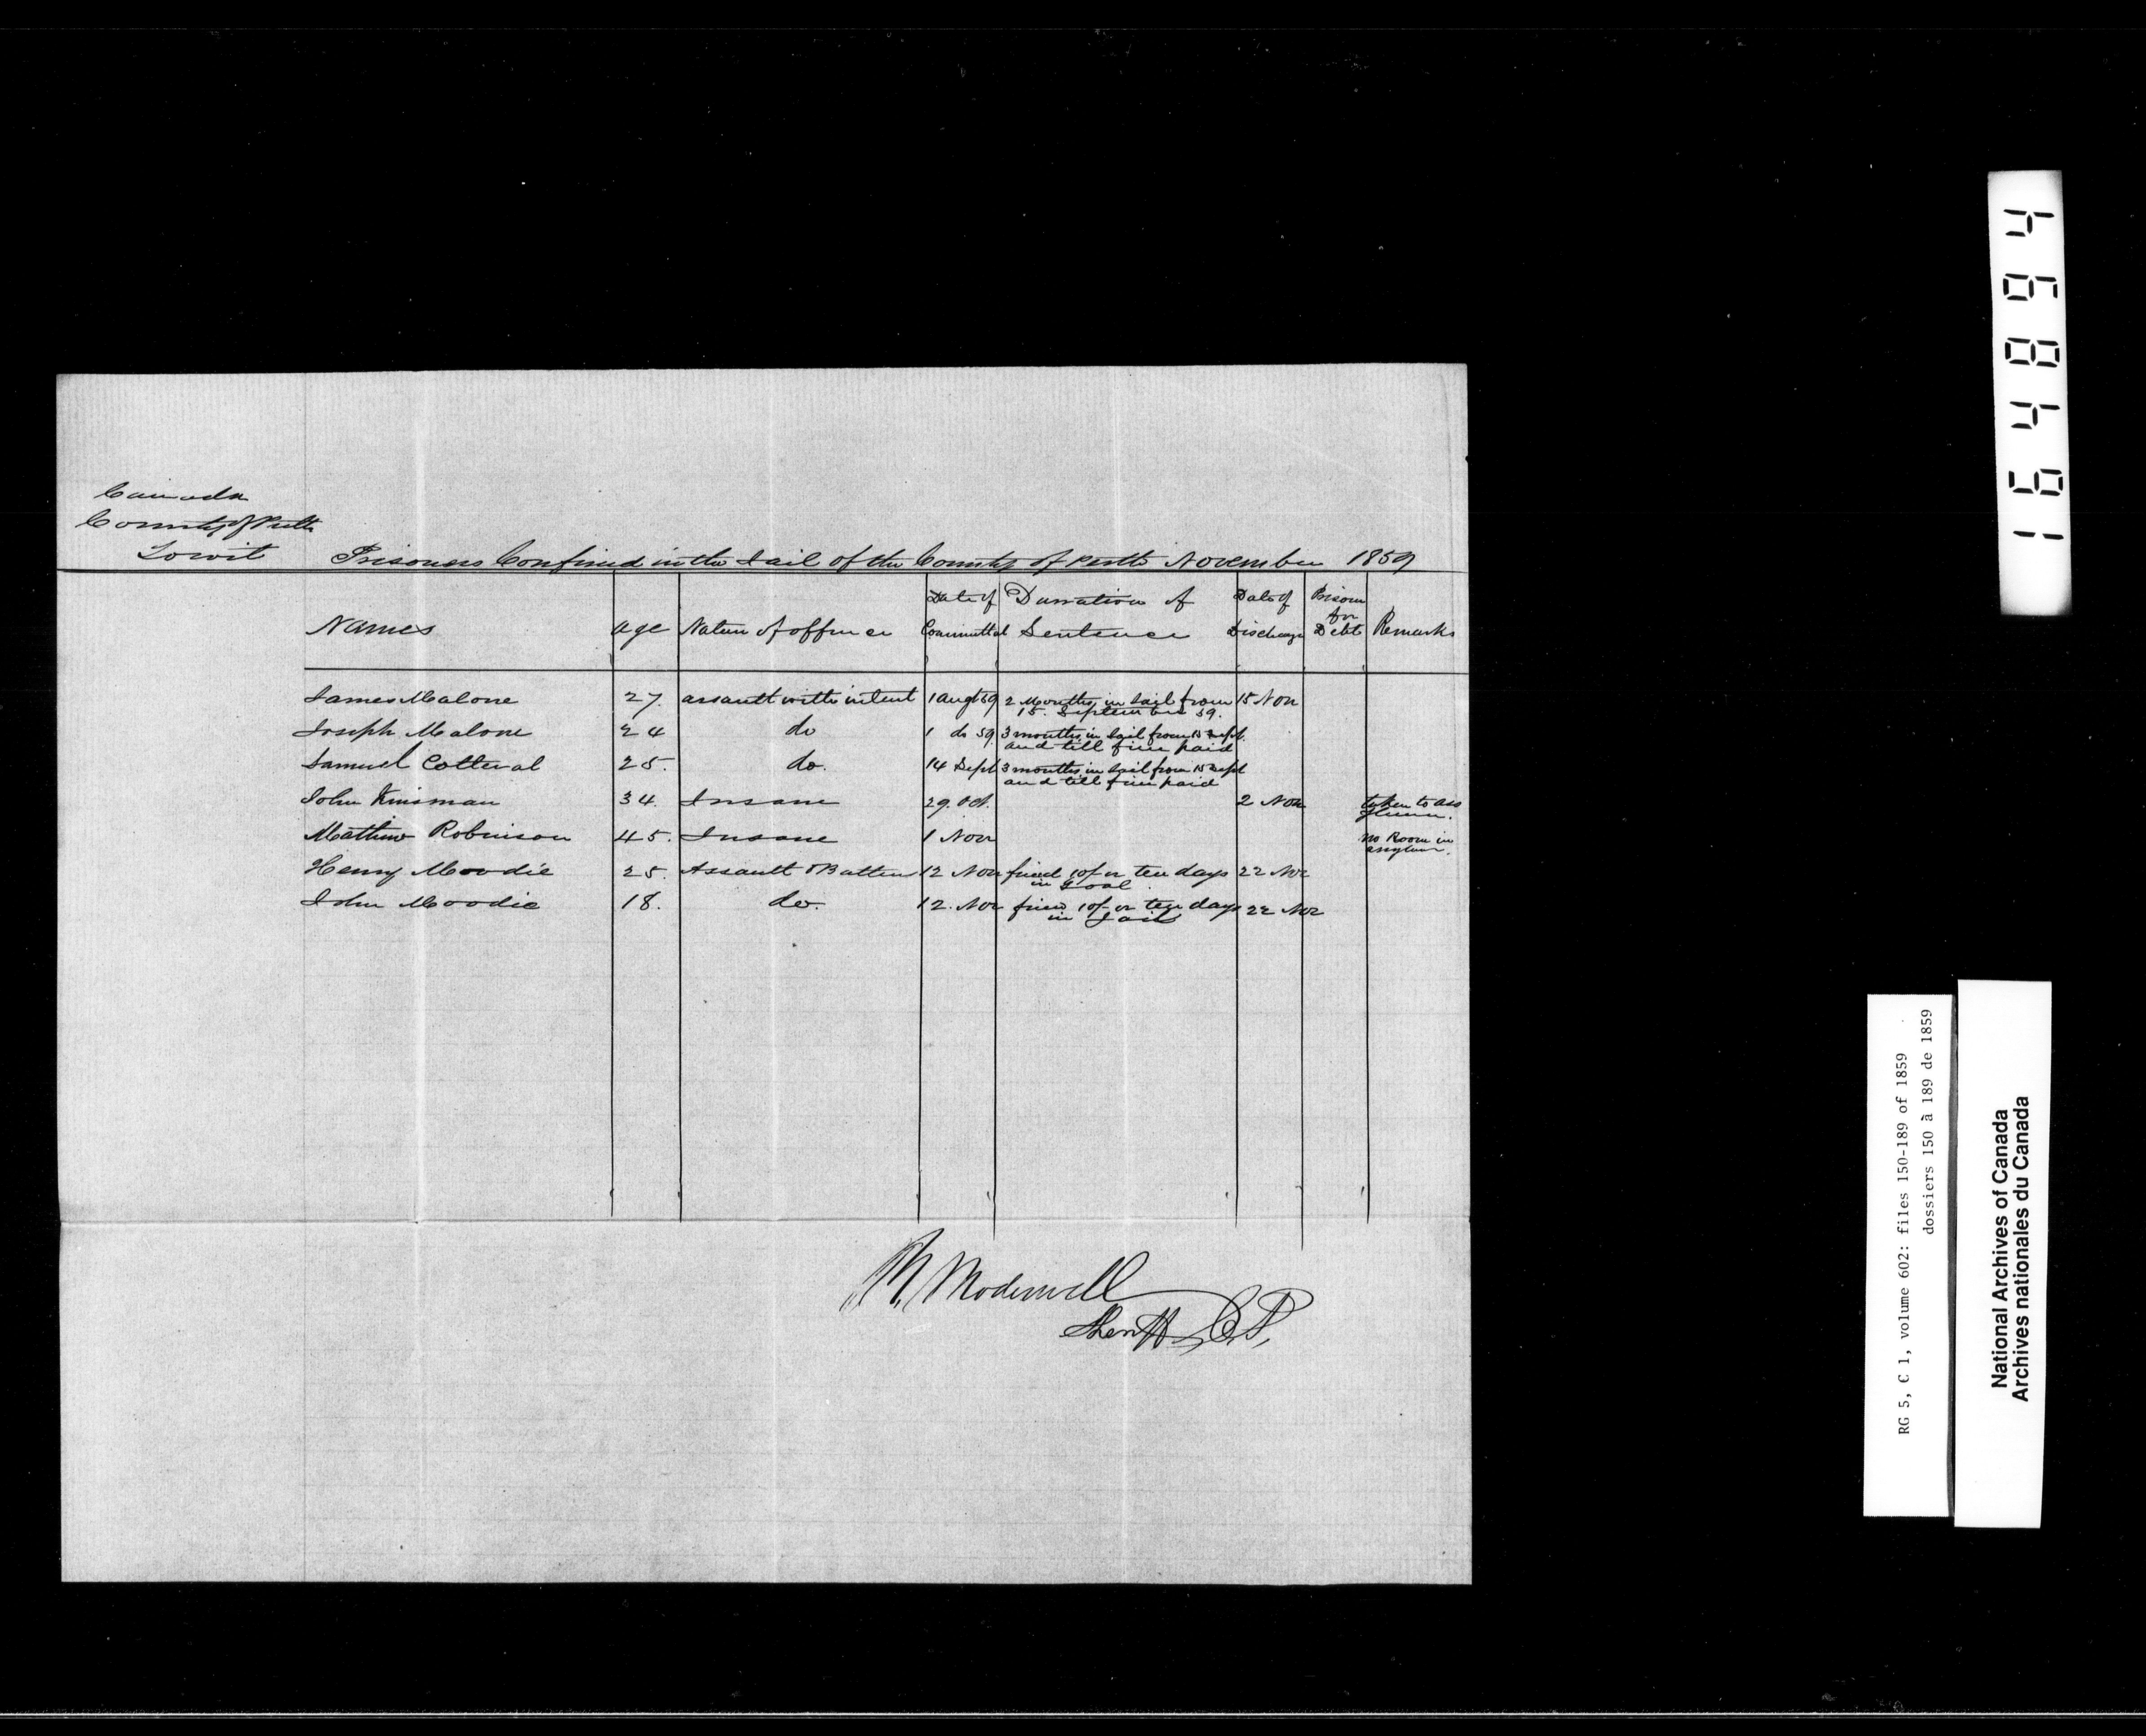 Canada
County of Perth
To wit
Prisoners Confined in the Jail of the County of Perth November 1859
Names age Nature of offence Date of Committal Durration of Sentence Date of Discharge Prison for Debt Remarks
James Malone 27. assault with intent 1 augt 59 2 Months in Jail from 15 Nov
15. September 59.
Joseph Malone 24 do 1 do 59 3 months in Jail from 15 Sept.
and till fine paid
Samuel Cotteral 25. do. 14 Sept 3 months in Jail from 15 Sept
and till fine paid
John Kinsman 34. Insane 29. Oct. 2 Nov taken to ass
ylum.
Mathew Robinson 45. Insane 1 Nov No Room in
assylum.
Henry Moodie 25. Assault & Battery 12 Nov fined 10/- or ten days 22 Nov
in Goal.
John Moodie 18. do. 12. Nov fined 10/- or ten days 22 Nov
in Jail
M. Moderwell
Sheriff C.P.
164894
RG 5, C 1, volume 602: files 150-189 of 1859
dossiers 150 à 189 de 1859
National Archives of Canada
Archives nationales du Canada